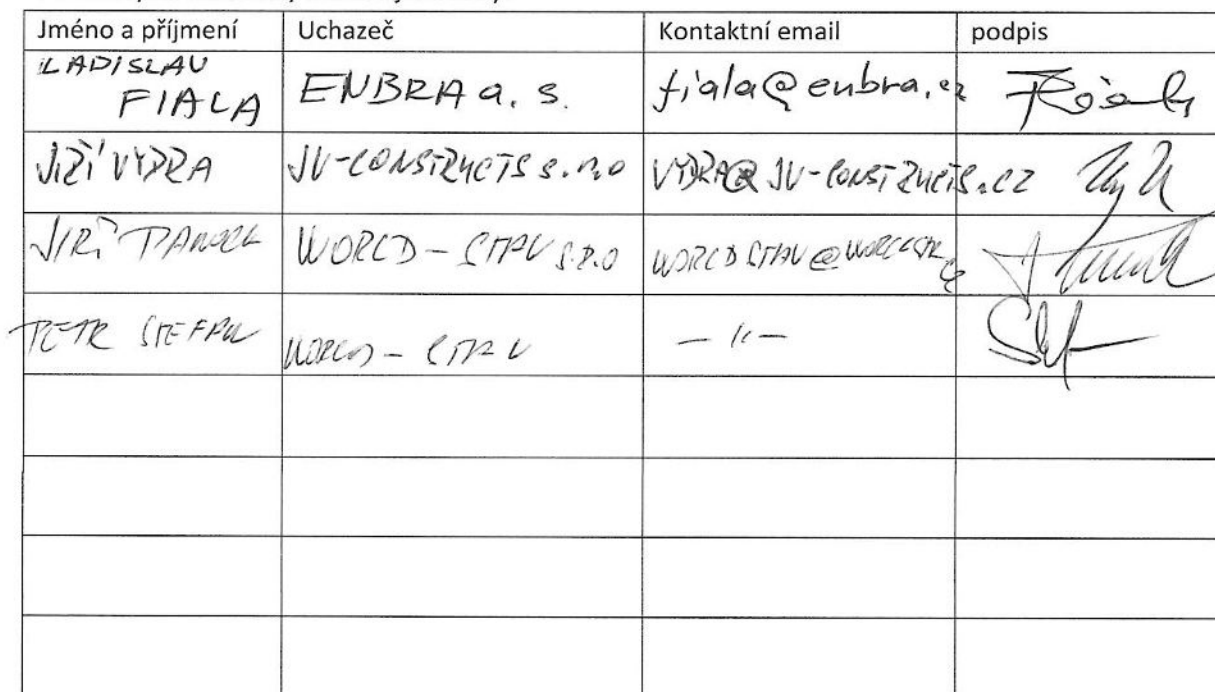 Jméno a příjmení Uchazeč Kontaktní email podpis
LADISLAV
FIALA ENBRA a. s. fiala@enbra.cz
JIŘÍ VYDRA JV-CONSTRUCTS s.r.o VYDRA@JV-CONSTRUCTS.CZ
JIŘÍ WORLD-STAV s.r.o
PETR STEFAN WORLD-STAV -"-